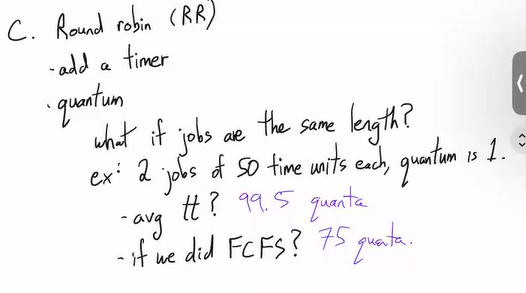 C. Round robin (RR)
- add a timer
. quantum
what if jobs are the same length?
ex: 2 jobs of 50 time units each, quantum is 1.
- avg tt? 99.5 quanta
- if we did FCFS? 75 quanta.